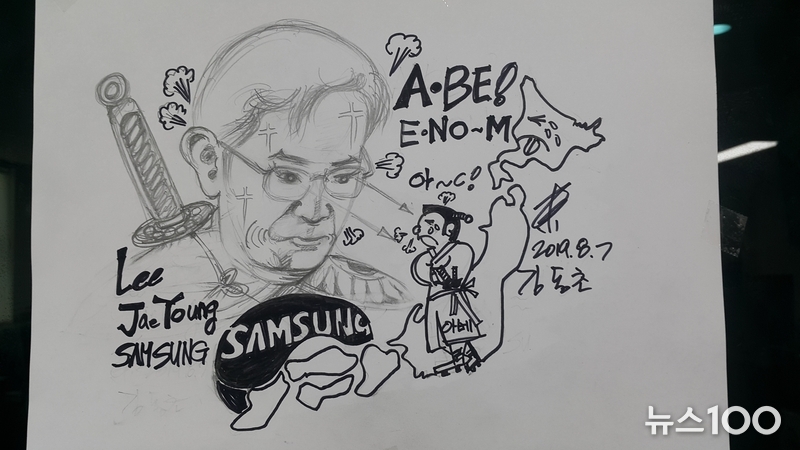 A·BE!
E·NO~M
아~C!
2019.8.7
김동초
Lee
Jae Young
SAMSUNG
SAMSUNG
아베
뉴스100